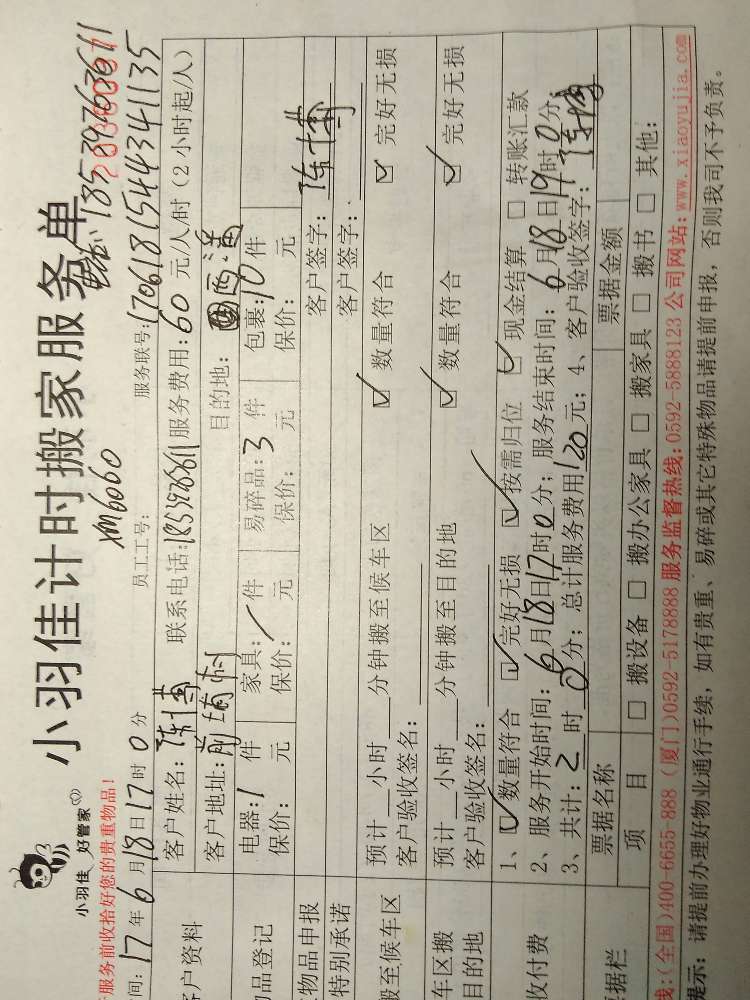 小羽佳计时搬家服务单
小羽佳 好管家
服务前收拾好您的贵重物品!
18539763611
XM6060
间: 17 年 6 月 18 日 17 时 0 分 员工工号: 服务联号: 170618154434 1135
客户资料 客户姓名: 陈博 联系电话: 服务费用: 60 元/人/时 (2 小时起/人)
客户地址: 前埔村 目的地:
物品登记 电器: 1 件 家具: / 件 易碎品: 3 件 包裹: 10 件
保价: 元 保价: 元 保价: 元 保价: 元
物品申报 客户签字: 陈博
特别承诺 客户签字:
搬至候车区 预计 小时 分钟搬至候车区 ☑ 数量符合 ☑ 完好无损
客户验收签名:
车区搬 预计 小时 分钟搬至目的地 ☑ 数量符合 ☑ 完好无损
目的地 客户验收签名:
收付费 1、☑ 数量符合 ☑ 完好无损 ☑ 按需归位 ☑ 现金结算 □ 转账汇款
2、服务开始时间: 6 月 18 日 17 时 0 分; 服务结束时间: 6 月 18 日 19 时 0 分
3、共计: 2 时 0 分; 总计服务费用 120 元; 4、客户验收签字: 陈博
票据栏 票据名称 票据金额
项 目 □ 搬设备 □ 搬办公家具 □ 搬家具 □ 搬书 □ 其他:
线: (全国)400-6655-888 (厦门)0592-5178888 服务监督热线: 0592-5888123 公司网站: www.xiaoyujia.com
提示: 请提前办理好物业通行手续, 如有贵重、易碎或其它特殊物品请提前申报, 否则我司不予负责。